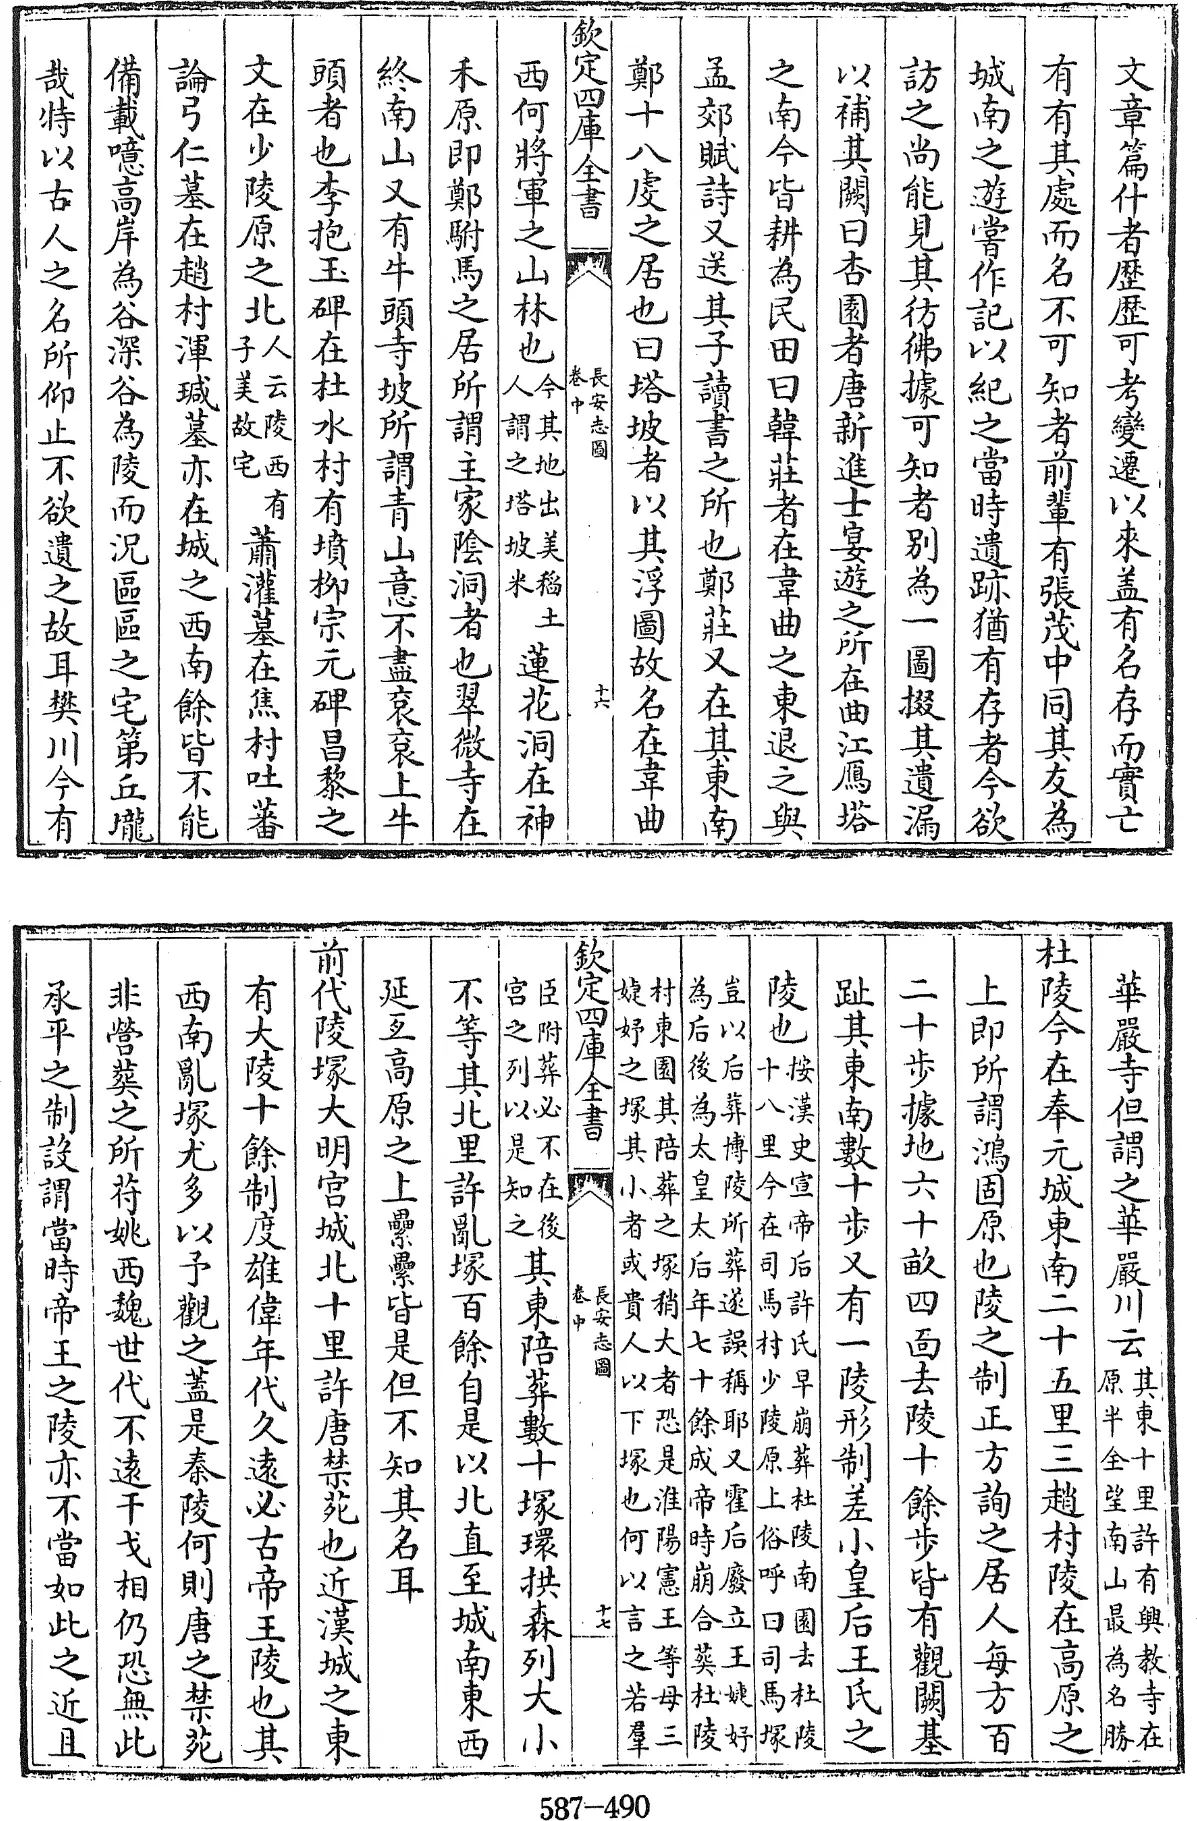 文章篇什者歷歷可考變遷以來盖有名存而實亡
有有其處而名不可知者前輩有張茂中同其友為
城南之遊嘗作記以紀之當時遺跡猶有存者今欲
訪之尚能見其彷彿據可知者别為一圖掇其遺漏
以補其闕曰杏園者唐新進士宴遊之所在曲江鴈塔
之南今皆耕為民田曰韓莊者在韋曲之東退之與
孟郊賦詩又送其子讀書之所也鄭莊又在其東南
鄭十八虔之居也曰塔坡者以其浮圖故名在韋曲
欽定四庫全書
長安志圖
卷中
十六
西何將軍之山林也今其地出美稻土人謂之塔坡米蓮花洞在神
禾原即鄭駙馬之居所謂主家陰洞者也翠微寺在
終南山又有牛頭寺坡所謂青山意不盡衮衮上牛
頭者也李抱玉碑在杜水村有墳柳宗元碑昌黎之
文在少陵原之北人云陵西有子美故宅蕭灌墓在焦村吐蕃
論弓仁墓在趙村渾瑊墓亦在城之西南餘皆不能
備載噫高岸為谷深谷為陵而況區區之宅第丘壠
哉特以古人之名所仰止不欲遺之故耳樊川今有
華嚴寺但謂之華嚴川云其東十里許有興教寺在原半全望南山最為名勝
杜陵今在奉元城東南二十五里三趙村陵在高原之
上即所謂鴻固原也陵之制正方詢之居人每方百
二十步據地六十畝四面去陵十餘步皆有觀闕基
趾其東南數十步又有一陵形制差小皇后王氏之
陵也按漢史宣帝后許氏早崩葬杜陵南園去杜陵十八里今在司馬村少陵原上俗呼曰司馬塚
豈以后葬博陵所葬遂誤稱耶又霍后廢立王婕妤為后後為太皇太后年七十餘成帝時崩合葬杜陵
村東園其陪葬之塚稍大者恐是淮陽憲王等母三婕妤之塚其小者或貴人以下塚也何以言之若羣
欽定四庫全書
長安志圖
卷中
十七
臣附葬必不在後宫之列以是知之其東陪葬數十塚環拱森列大小
不等其北里許亂塚百餘自是以北直至城南東西
延亙高原之上纍纍皆是但不知其名耳
前代陵塚大明宫城北十里許唐禁苑也近漢城之東
有大陵十餘制度雄偉年代久遠必古帝王陵也其
西南亂塚尤多以予觀之蓋是秦陵何則唐之禁苑
非營葬之所苻姚西魏世代不遠干戈相仍恐無此
承平之制設謂當時帝王之陵亦不當如此之近且
587-490